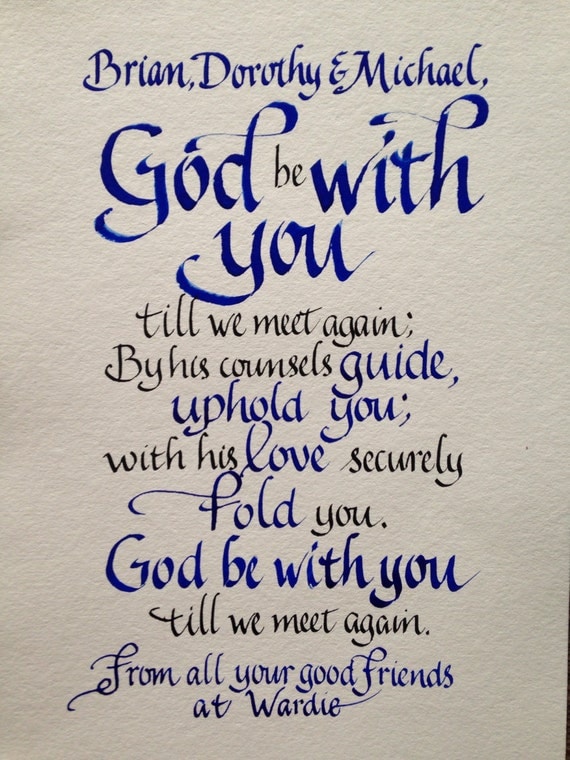 Brian, Dorothy & Michael,
God be with
you
till we meet again;
By his counsels guide,
uphold you;
with his love securely
fold you.
God be with you
till we meet again.
From all your good friends
at Wardie